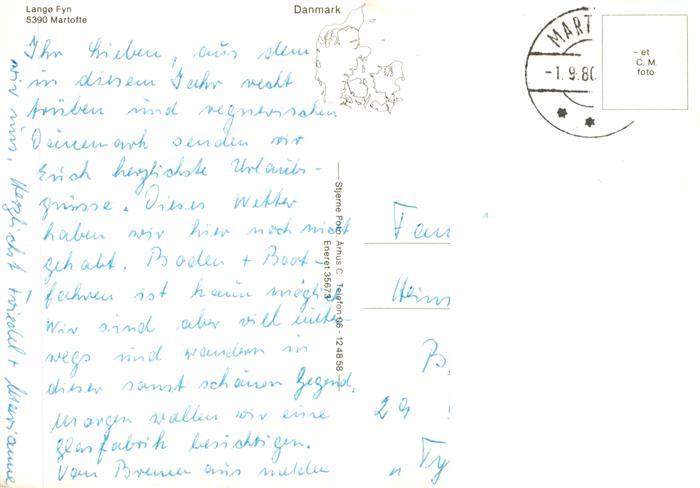 Langø Fyn
5390 Martofte
Danmark
MART
-1.9.80
- et
C. M.
foto
Ihr Lieben, aus dem
in diesem Jahr recht
trüben und regnerischen
Dänemark senden wir
Euch herzlichste Urlaubs-
grüsse. Dieses Wetter
haben wir hier noch nicht
gehabt. Baden + Boot-
fahren ist kaum möglich.
Wir sind aber viel unter-
wegs und wandern in
dieser sonst schönen Gegend.
Morgen wollen wir eine
Glasfabrik besichtigen.
Von Bremen aus melden
wir uns. Herzlichst Friedel + Marianne
Stjerne Foto, Århus C Telefon 06 - 12 48 58
Eneret 35673
Fam
Hein
B
29